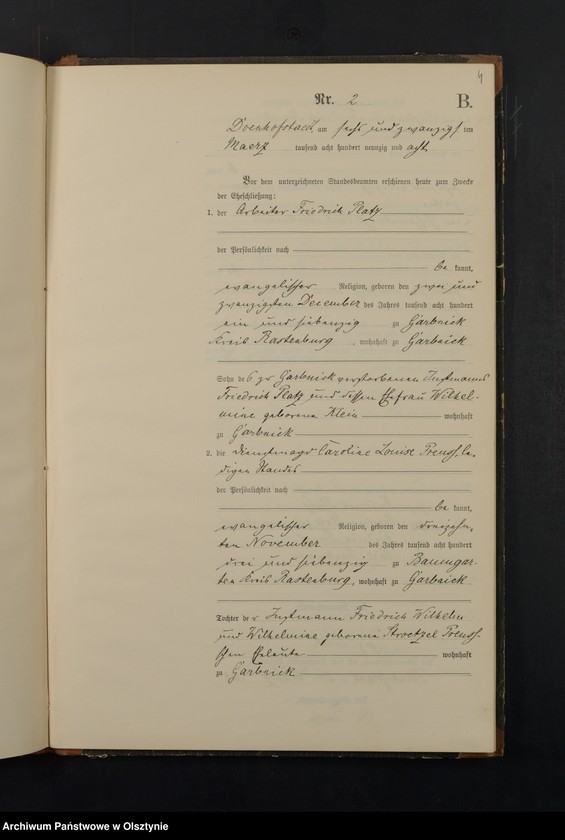 4
Nr. 2 B.
Doenhofstaedt, am sechs und zwanzigsten
Maerz tausend acht hundert neunzig und acht.
Vor dem unterzeichneten Standesbeamten erschienen heute zum Zwecke
der Eheschließung:
1. der Arbeiter Friedrich Platz
der Persönlichkeit nach
be kannt,
evangelischer Religion, geboren den zwei und
zwanzigsten December des Jahres tausend acht hundert
ein und siebenzig zu Garbnick
Kreis Rastenburg, wohnhaft zu Garbnick
Sohn des zu Garbnick verstorbenen Instmanns
Friedrich Platz und dessen Ehefrau Wilhel-
mine geborene Klein wohnhaft
zu Garbnick
2. die Dienstmagd Caroline Louise Preuss, le-
digen Standes
der Persönlichkeit nach
be kannt,
evangelischer Religion, geboren den dreizehn-
ten November des Jahres tausend acht hundert
drei und siebenzig zu Baumgar-
ten Kreis Rastenburg, wohnhaft zu Garbnick
Tochter der Instmann Friedrich Wilhelm
und Wilhelmine geborene Preuss-
schen Eheleute wohnhaft
zu Garbnick
Archiwum Państwowe w Olsztynie